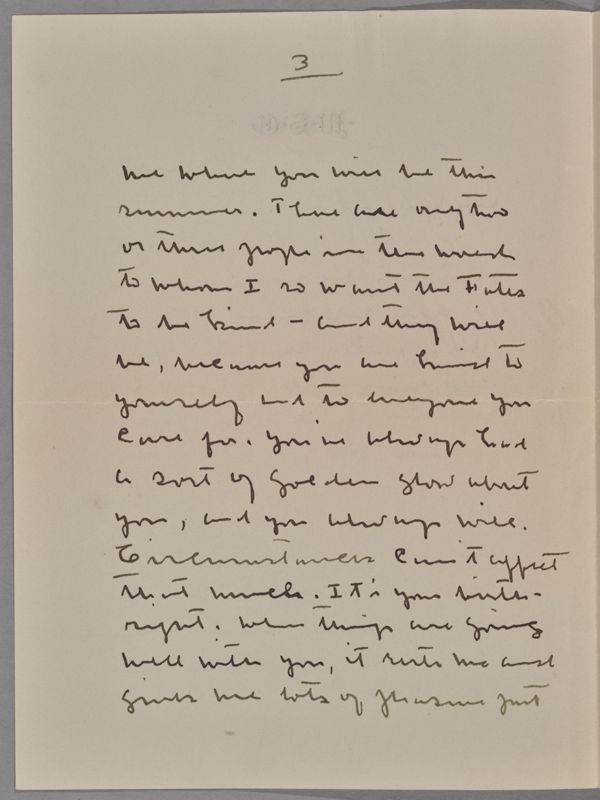 3
me where you will be this
summer. There are only two
or three people in the world
to whom I so want the Fates
to be kind – and they will
be, because you are kind to
yourself and to everyone you
care for. You've always had
a sort of golden glow about
you, and you always will.
Circumstances can't affect
that much. It's your birth-
right. When things are going
well with you, it rests me and
gives me lots of pleasure just